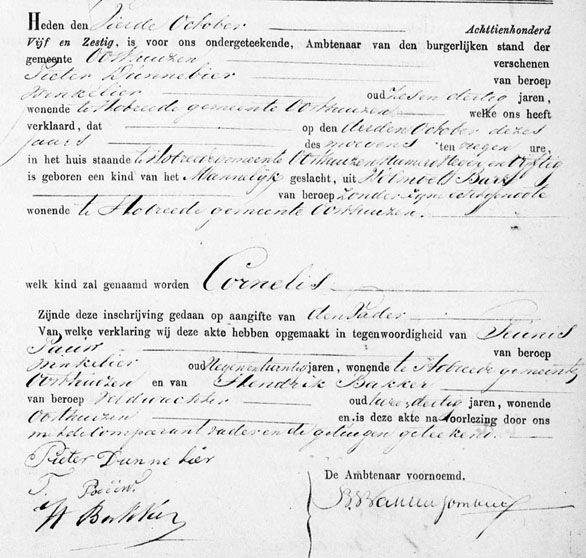 Heden den Vierde October Achttienhonderd
Vijf en Zestig, is voor ons ondergeteekende, Ambtenaar van den burgerlijken stand der
gemeente Oosthuizen verschenen
Pieter Dunnebier van beroep
winkelier oud zesen dertig jaren,
wonende te Hobreede gemeente Oosthuizen welke ons heeft
verklaard, dat op den derden October dezes
jaars des morgens ten negen ure,
in het huis staande te Hobreede gemeente Oosthuizen Numero Negen en vyftig
is geboren een kind van het Mannelyk geslacht, uit
van beroep Zonder Zyne echtgenoote
wonende te Hobreede gemeente Oosthuizen.
welk kind zal genaamd worden Cornelis
Zijnde deze inschrijving gedaan op aangifte van den Vader
Van welke verklaring wij deze akte hebben opgemaakt in tegenwoordigheid van Teunis
van beroep
winkelier oud Negenentwintig jaren, wonende te Hobreede gemeente
Oosthuizen en van Hendrik Bakker
van beroep veldwachter oud twee dertig jaren, wonende
Oosthuizen en is deze akte na voorlezing door ons
met de Comparant vader en de getuigen geteekend.
Pieter Dunnebier
T.
H Bakker
De Ambtenaar voornoemd,